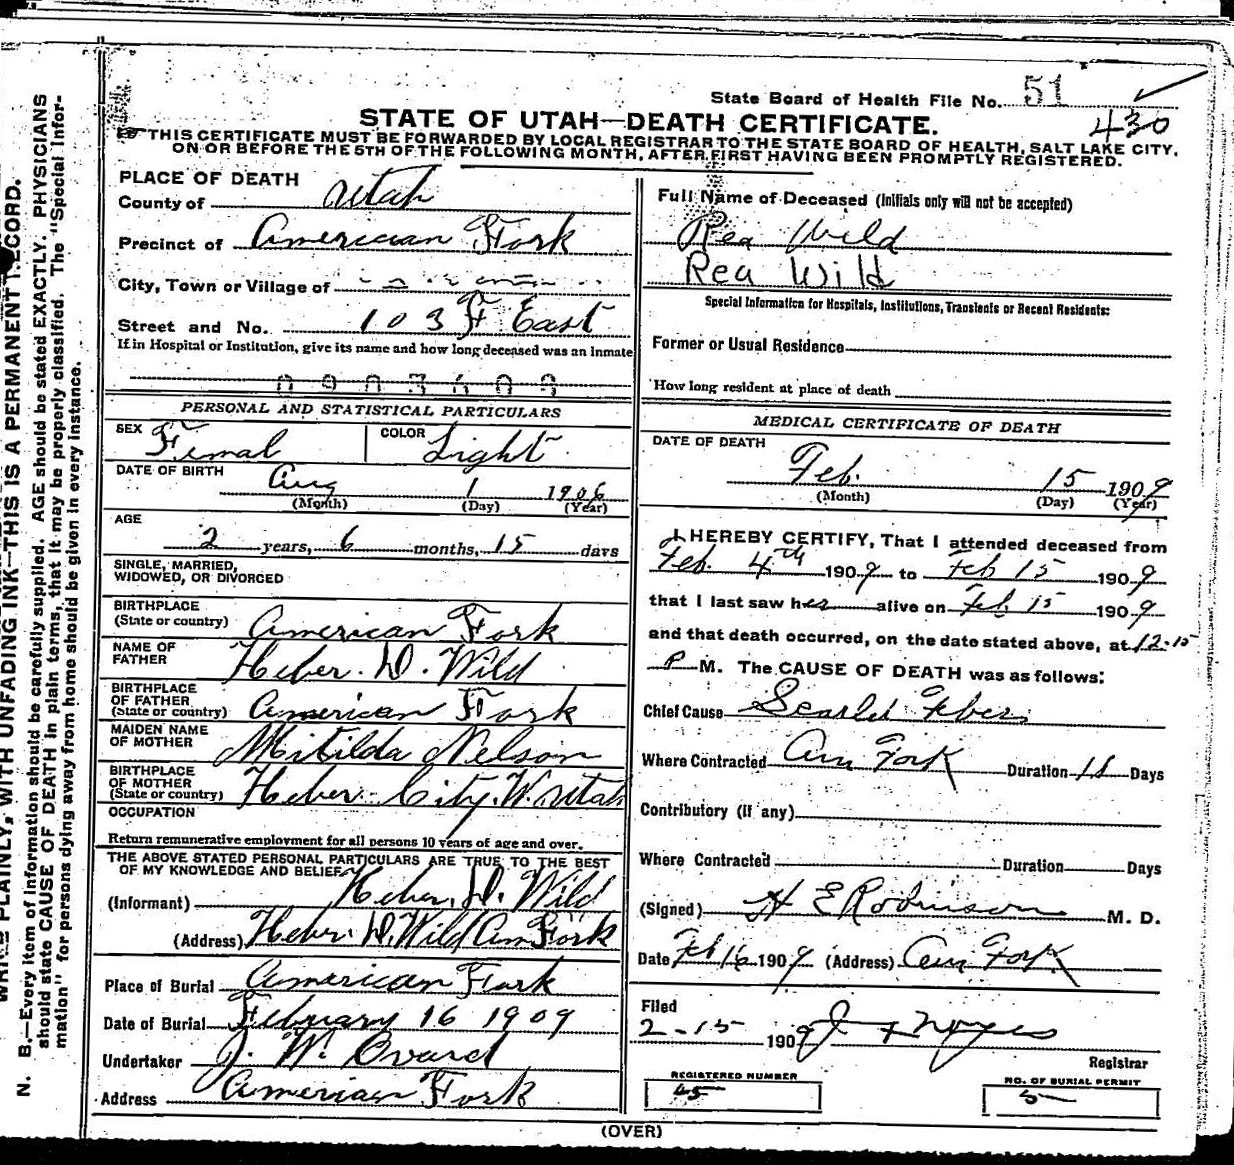 State Board of Health File No. 51
430
STATE OF UTAH—DEATH CERTIFICATE.
THIS CERTIFICATE MUST BE FORWARDED BY LOCAL REGISTRAR TO THE STATE BOARD OF HEALTH, SALT LAKE CITY,
ON OR BEFORE THE 5TH OF THE FOLLOWING MONTH, AFTER FIRST HAVING BEEN PROMPTLY REGISTERED.
PLACE OF DEATH
County of Utah
Precinct of American Fork
City, Town or Village of
Street and No. 103 St East
If in Hospital or Institution, give its name and how long deceased was an inmate
PERSONAL AND STATISTICAL PARTICULARS
SEX Femal COLOR Light
DATE OF BIRTH Aug 1 1906
(Month) (Day) (Year)
AGE
2 years, 6 months, 15 days
SINGLE, MARRIED,
WIDOWED, OR DIVORCED
BIRTHPLACE
(State or country) American Fork
NAME OF
FATHER Heber. D. Wild
BIRTHPLACE
OF FATHER
(State or country) American Fork
MAIDEN NAME
OF MOTHER Mitilda Nelson
BIRTHPLACE
OF MOTHER
(State or country) Heber City, W. Utah
OCCUPATION
Return remunerative employment for all persons 10 years of age and over.
THE ABOVE STATED PERSONAL PARTICULARS ARE TRUE TO THE BEST
OF MY KNOWLEDGE AND BELIEF
(Informant) Heber. D. Wild
(Address) Heber D. Wild Am Fork
Place of Burial American Fork
Date of Burial February 16 1909
Undertaker J. W. Ovard
Address American Fork
Full Name of Deceased (Initials only will not be accepted)
Rea Wild
Rea Wild
Special Information for Hospitals, Institutions, Transients or Recent Residents:
Former or Usual Residence
How long resident at place of death
MEDICAL CERTIFICATE OF DEATH
DATE OF DEATH
Feb. 15 1909
(Month) (Day) (Year)
I HEREBY CERTIFY, That I attended deceased from
Feb. 4th 1909 to Feb 15 1909
that I last saw her alive on Feb. 15 1909
and that death occurred, on the date stated above, at 12.15
P M. The CAUSE OF DEATH was as follows:
Chief Cause Scarlet Fever
Where Contracted Am Fork Duration 11 Days
Contributory (if any)
Where Contracted Duration Days
(Signed) H E Robinson M. D.
Date Feb 16 1909 (Address) Am Fork
Filed
2-15 1909 J
Registrar
REGISTERED NUMBER
45
NO. OF BURIAL PERMIT
5
(OVER)
PLAINLY, WITH UNFADING INK—THIS IS A PERMANENT RECORD.
N. B.—Every item of information should be carefully supplied. AGE should be stated EXACTLY. PHYSICIANS
should state CAUSE OF DEATH in plain terms, that it may be properly classified. The "Special Infor-
mation" for persons dying away from home should be given in every instance.